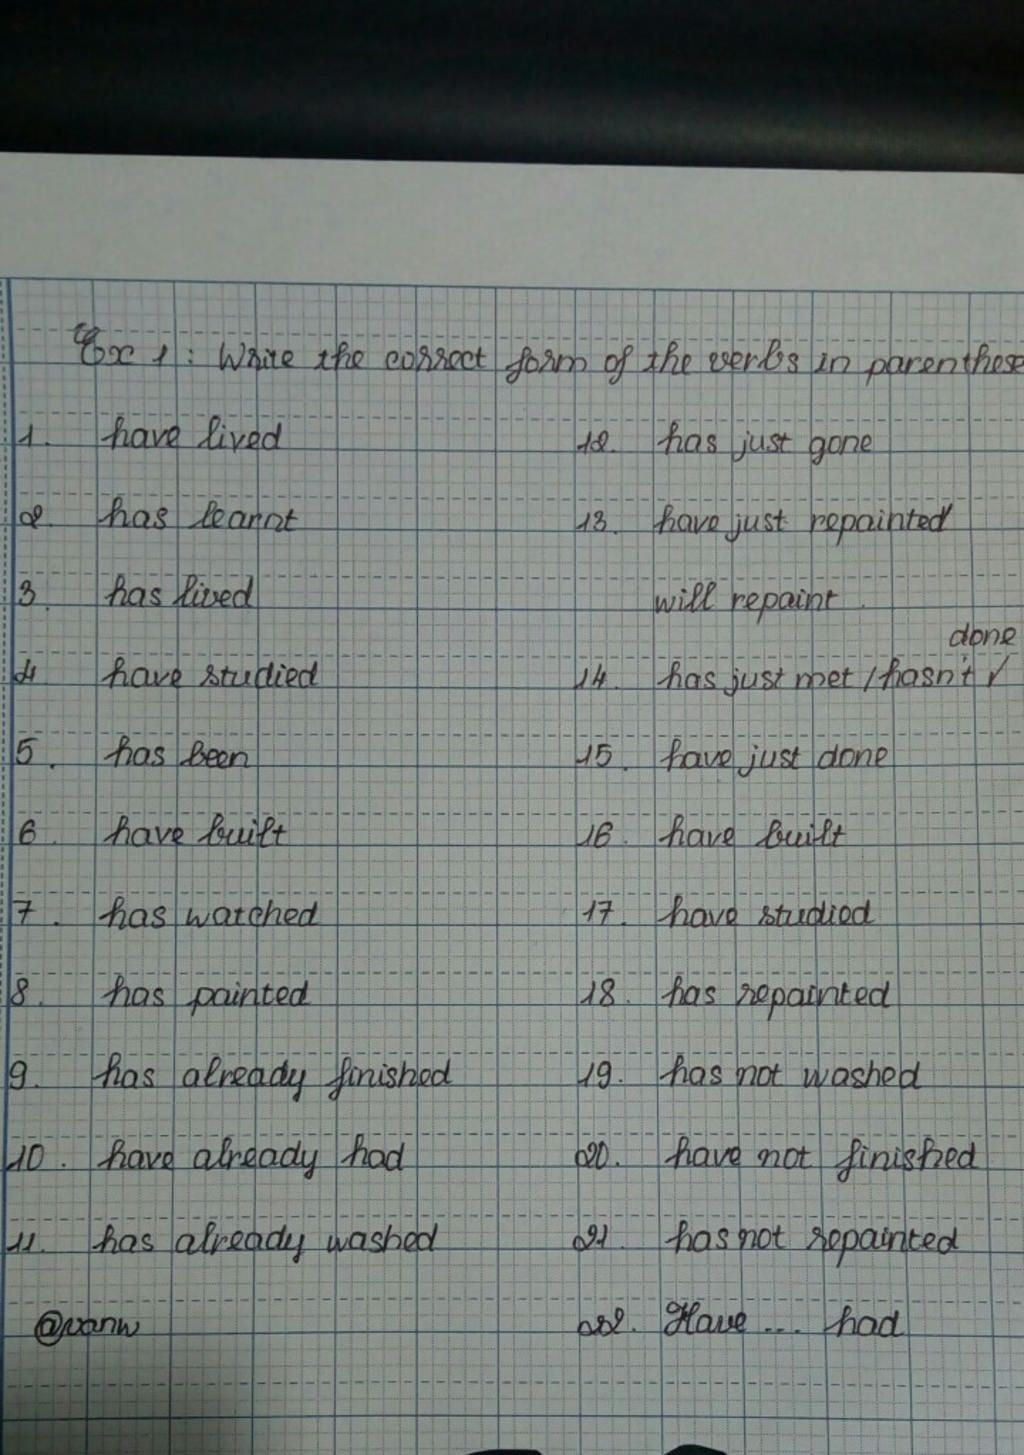 Ex 1 : Write the correct form of the verbs in parenthese
1. have lived
2. has learnt
3. has lived
4. have studied
5. has been
6. have built
7. has watched
8. has painted
9. has already finished
10. have already had
11. has already washed
@vanw
12. has just gone
13. have just repainted
will repaint
done
14. has just met / hasn't √
15. have just done
16. have built
17. have studied
18. has repainted
19. has not washed
20. have not finished
21. has not repainted
22. Have ... had